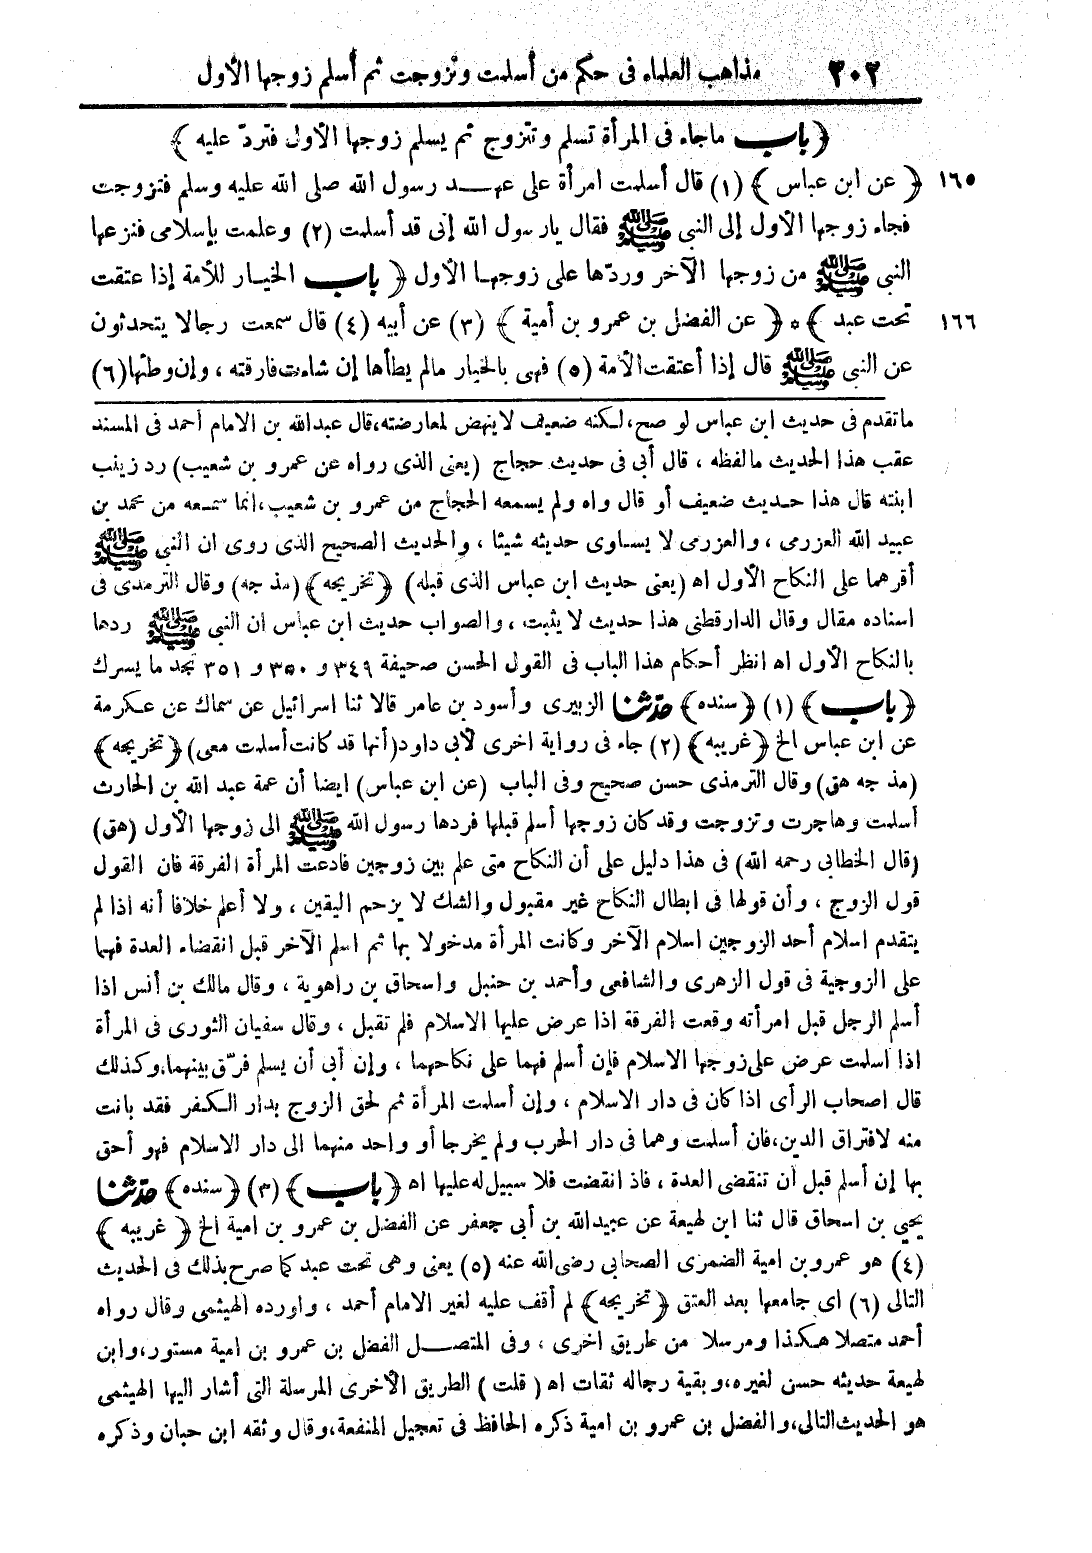 ٢٠٢ مذاهب العلماء فى حكم من أسلمت وتزوجت ثم أسلم زوجها الأول
﴿باب ماجاء فى المرأة تسلم وتتزوج ثم يسلم زوجها الأول فتردّ عليه﴾
١٦٥ ﴿عن ابن عباس﴾ (١) قال أسلمت امرأة على عهد رسول الله صلى الله عليه وسلم فتزوجت
فجاء زوجها الأول إلى النبى ﷺ فقال يارسول الله إنى قد أسلمت (٢) وعلمت بإسلامى فنزعها
النبى ﷺ من زوجها الآخر وردّها على زوجها الأول ﴿باب الخيار للأمة إذا عتقت
١٦٦ تحت عبد﴾ * ﴿عن الفضل بن عمرو بن أمية﴾ (٣) عن أبيه (٤) قال سمعت رجالا يتحدثون
عن النبى ﷺ قال إذا أعتقت الأمة (٥) فهى بالخيار مالم يطأها إن شاءت فارقته ، وإن وطئها (٦)
ماتقدم فى حديث ابن عباس لو صح،لكنه ضعيف لاينهض لمعارضته،قال عبدالله بن الامام أحمد فى المسند
عقب هذا الحديث مالفظه ، قال أبى فى حديث حجاج (يعنى الذى رواه عن عمرو بن شعيب) رد زينب
ابنته قال هذا حديث ضعيف أو قال واه ولم يسمعه الحجاج من عمرو بن شعيب،انما سمعه من محمد بن
عبيد الله العزرمى ، والعزرمى لا يساوى حديثه شيئا ، والحديث الصحيح الذى روى ان النبى ﷺ
أقرهما على النكاح الأول اه (يعنى حديث ابن عباس الذى قبله) ﴿تخريجه﴾ (مذ جه) وقال الترمذى فى
اسناده مقال وقال الدارقطنى هذا حديث لا يثبت ، والصواب حديث ابن عباس ان النبى ﷺ ردها
بالنكاح الأول اه انظر أحكام هذا الباب فى القول الحسن صحيفة ٣٤٩ و ٣٥٠ و ٣٥١ تجد ما يسرك
﴿باب﴾ (١) ﴿سنده﴾ حدّثنا الزبيرى وأسود بن عامر قالا ثنا اسرائيل عن سماك عن عكرمة
عن ابن عباس الخ ﴿غريبه﴾ (٢) جاء فى رواية اخرى لأبى داود(أنها قد كانت أسلمت معى) ﴿تخريجه﴾
(مذ جه هق) وقال الترمذى حسن صحيح وفى الباب (عن ابن عباس) ايضا أن عمة عبد الله بن الحارث
أسلمت وهاجرت وتزوجت وقد كان زوجها أسلم قبلها فردها رسول الله ﷺ الى زوجها الأول (هق)
(قال الخطابى رحمه الله) فى هذا دليل على أن النكاح متى علم بين زوجين فادعت المرأة الفرقة فان القول
قول الزوج ، وأن قولها فى ابطال النكاح غير مقبول والشك لا يزحم اليقين ، ولا أعلم خلافا أنه اذا لم
يتقدم اسلام أحد الزوجين اسلام الآخر وكانت المرأة مدخولا بها ثم اسلم الآخر قبل انقضاء العدة فهما
على الزوجية فى قول الزهرى والشافعى وأحمد بن حنبل واسحاق بن راهوية ، وقال مالك بن أنس اذا
أسلم الرجل قبل امرأته وقعت الفرقة اذا عرض عليها الاسلام فلم تقبل ، وقال سفيان الثورى فى المرأة
اذا اسلمت عرض على زوجها الاسلام فإن أسلم فهما على نكاحهما ، وإن أبى أن يسلم فرّق بينهما،وكذلك
قال اصحاب الرأى اذا كان فى دار الاسلام ، وإن أسلمت المرأة ثم لحق الزوج بدار الكفر فقد بانت
منه لافتراق الدين،فان أسلمت وهما فى دار الحرب ولم يخرجا أو واحد منهما الى دار الاسلام فهو أحق
بها إن أسلم قبل أن تنقضى العدة ، فاذ انقضت فلا سبيل له عليها اه ﴿باب﴾ (٣) ﴿سنده﴾ حدّثنا
يحيى بن اسحاق قال ثنا ابن لهيعة عن عبيدالله بن أبى جعفر عن الفضل بن عمرو بن امية الخ ﴿غريبه﴾
(٤) هو عمرو بن امية الضمرى الصحابى رضى الله عنه (٥) يعنى وهى تحت عبد كما صرح بذلك فى الحديث
التالى (٦) اى جامعها بعد العتق ﴿تخريجه﴾ لم أقف عليه لغير الامام أحمد ، واورده الهيثمى وقال رواه
أحمد متصلا هكذا ومرسلا من طريق اخرى ، وفى المتصل الفضل بن عمرو بن امية مستور،وابن
لهيعة حديثه حسن لغيره،وبقية رجاله ثقات اه (قلت) الطريق الأخرى المرسلة التى أشار اليها الهيثمى
هو الحديث التالى،والفضل بن عمرو بن امية ذكره الحافظ فى تعجيل المنفعة،وقال وثقه ابن حبان وذكره